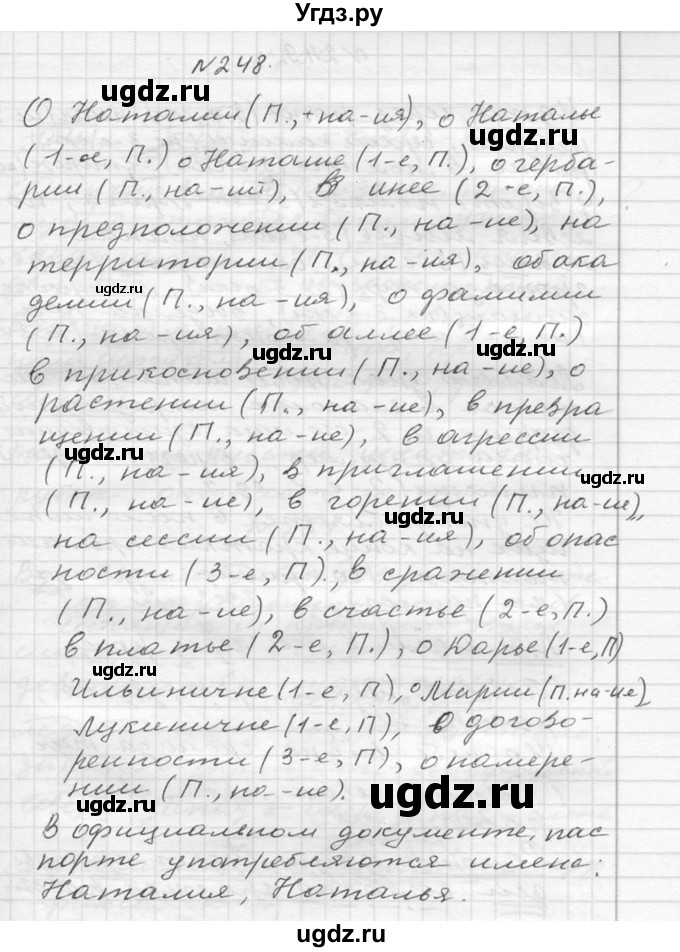 Угдз.ру
№248.
О Наталии (П., + на -ия), о Наталье
(1-е, П.) о Наташе (1-е, П.), о герба-
рии (П., на -ий), в инее (2-е, П.),
о предположении (П., на -ие), на
территории (П., на -ия), об ака
демии (П., на -ия), о фамилии
(П., на -ия), об аллее (1-е, П.)
в прикосновении (П., на -ие), о
растении (П., на -ие), в превра
щении (П., на -ие), в агрессии
(П., на -ия), в приглашении
(П., на -ие), в горении (П., на -ие),
на сессии (П., на -ия), об опас
ности (3-е, П)., в сражении
(П., на -ие), в счастье (2-е, П.)
в платье (2-е, П.), о Дарье (1-е, П)
Ильиничне (1-е, П), о Марии (П. на -ие)
Лукиничне (1-е, П), о догово-
ренности (3-е, П), о намере-
нии (П., на -ие).
В официальном документе, пас
порте употребляются имена:
Наталия, Наталья.
ugdz.ru
ugdz.ru
ugdz.ru
ugdz.ru
ugdz.ru
ugdz.ru
ugdz.ru
ugdz.ru
ugdz.ru
ugdz.ru
ugdz.ru
ugdz.ru
ugdz.ru
ugdz.ru